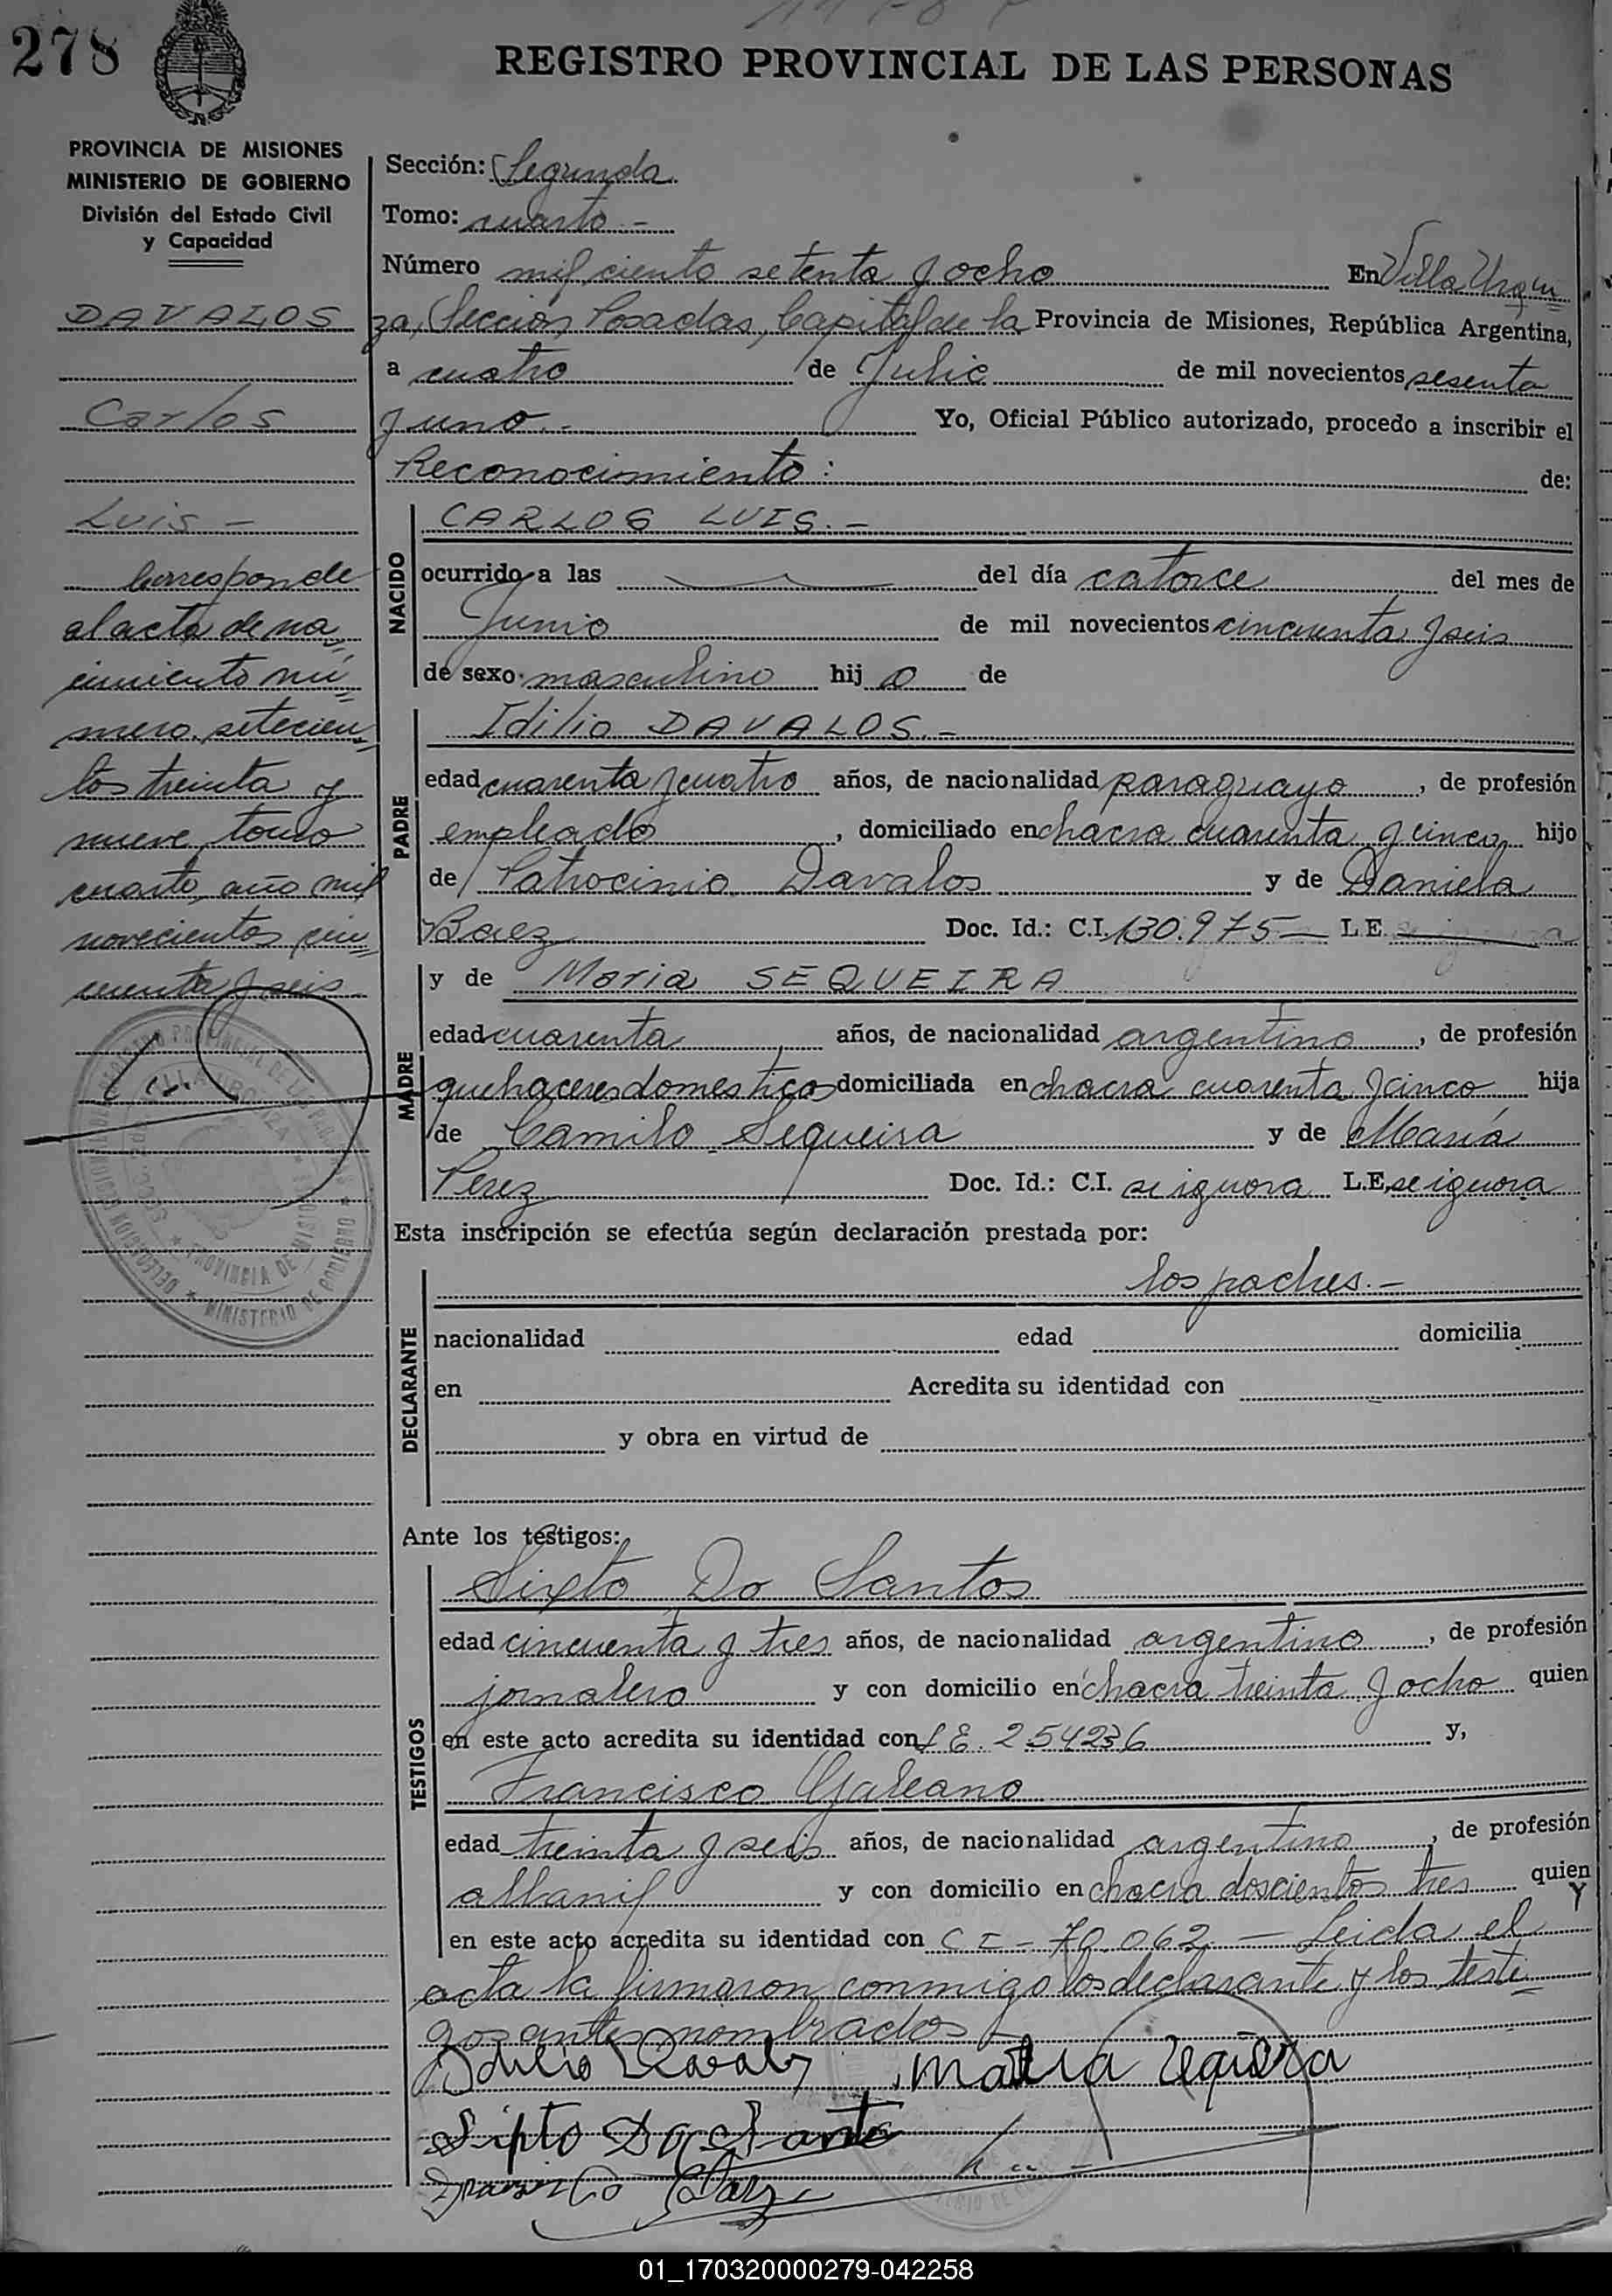 278
REGISTRO PROVINCIAL DE LAS PERSONAS
PROVINCIA DE MISIONES
MINISTERIO DE GOBIERNO
División del Estado Civil
y Capacidad
DAVALOS
Carlos
Luis –
Corresponde
al acta de na
cimiento nú
mero setecien
tos treinta y
nueve, tomo
cuarto, año mil
novecientos cin
cuenta y seis
Sección: Segunda
Tomo: cuarto –
Número mil ciento setenta y ocho En Villa Urqui
za, Sección Posadas, Capital de la Provincia de Misiones, República Argentina,
a cuatro de Julio de mil novecientos sesenta
y uno.– Yo, Oficial Público autorizado, procedo a inscribir el
Reconocimiento: de:
NACIDO
CARLOS LUIS.–
ocurrido a las del día catorce del mes de
Junio de mil novecientos cincuenta y seis
de sexo masculino hij o de
PADRE
Idilio DAVALOS.–
edad cuarenta y cuatro años, de nacionalidad paraguayo, de profesión
empleado, domiciliado en chacra cuarenta y cinco hijo
de Patrocinio Davalos y de Daniela
Baez Doc. Id.: C.I. 130.975– L.E.
MADRE
y de Maria SEQUEIRA
edad cuarenta años, de nacionalidad argentina, de profesión
quehaceres domesticos domiciliada en chacra cuarenta y cinco hija
de Camilo Sequeira y de María
Perez Doc. Id.: C.I. se ignora L.E. se ignora
Esta inscripción se efectúa según declaración prestada por:
DECLARANTE
los padres.–
nacionalidad edad domicilia
en Acredita su identidad con
y obra en virtud de
Ante los testigos:
TESTIGOS
Sixto Do Santos
edad cincuenta y tres años, de nacionalidad argentino, de profesión
jornalero y con domicilio en chacra treinta y ocho quien
en este acto acredita su identidad con L E. 254236 y,
Francisco Galeano
edad treinta y seis años, de nacionalidad argentino, de profesión
albanil y con domicilio en chacra doscientos tres quien
Y
en este acto acredita su identidad con C I – 70.062 – Leida el
acta la firmaron conmigo los declarante y los testi
gos antes nombrados
01_170320000279-042258